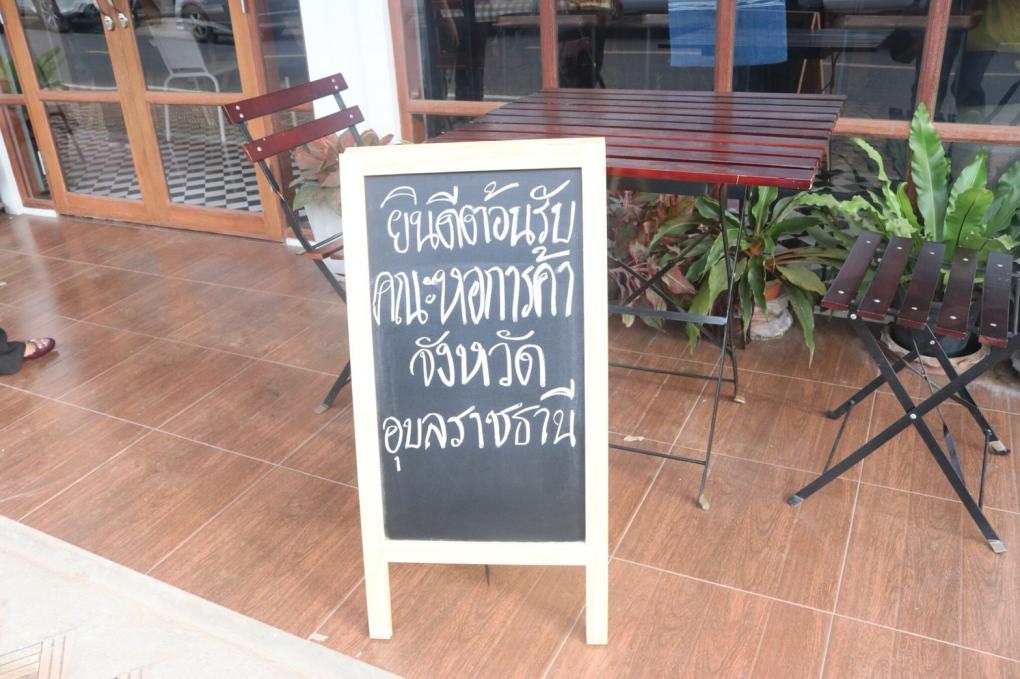 ยินดีต้อนรับ
คณะหอการค้า
จังหวัด
อุบลราชธานี